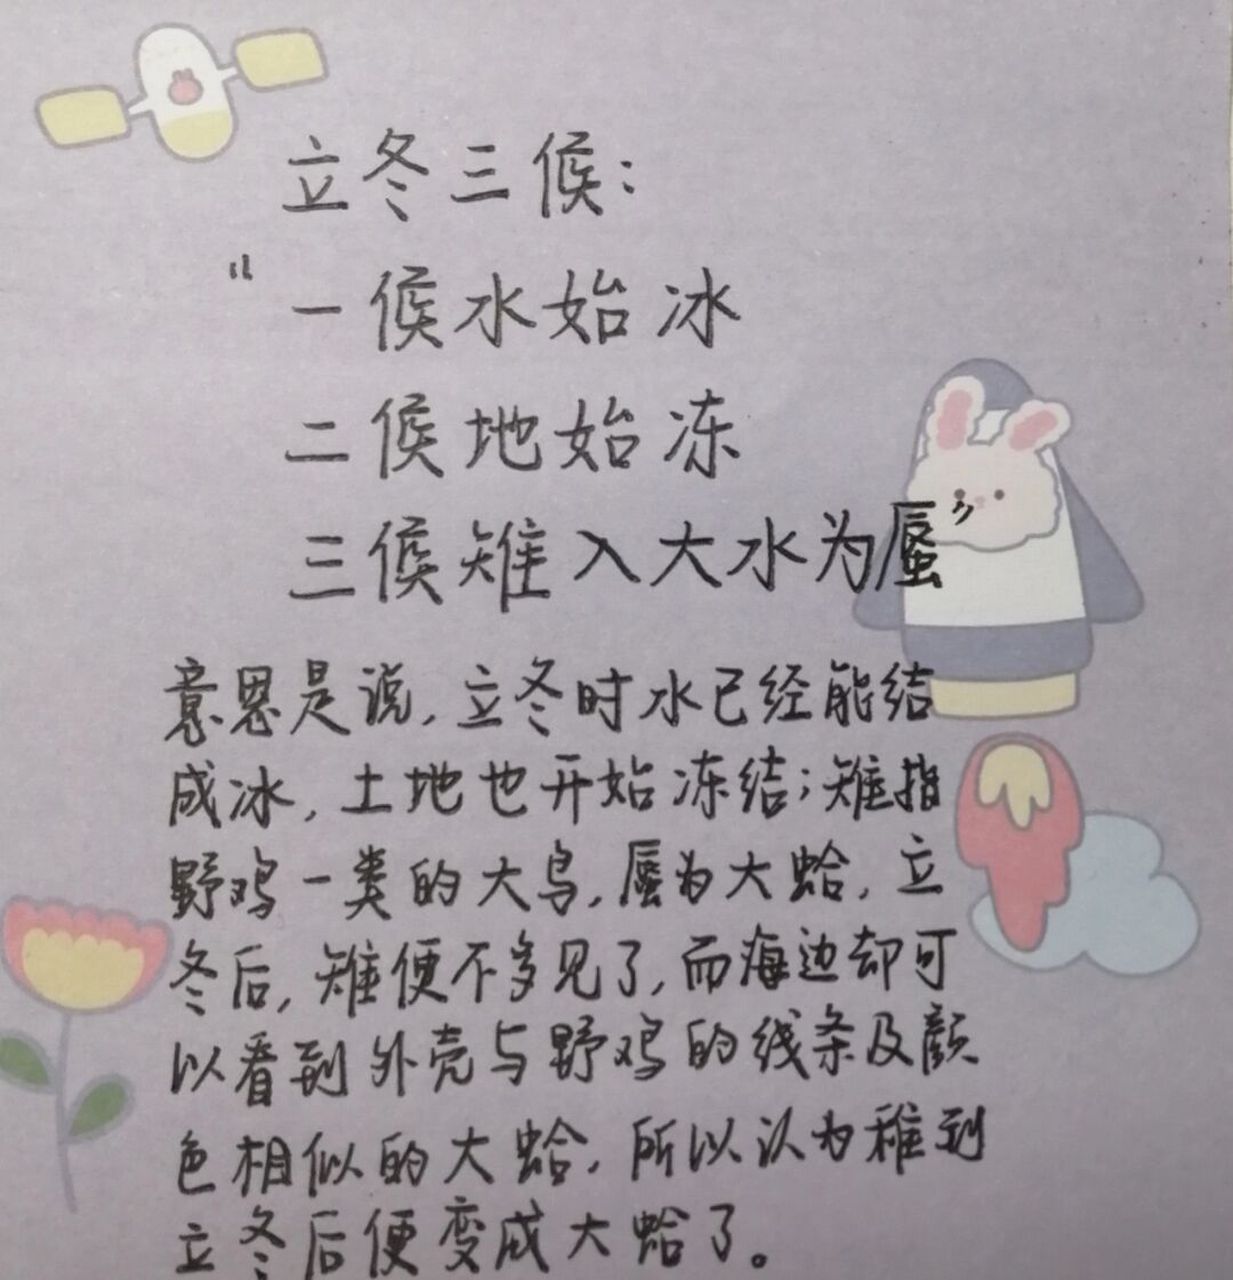 立冬三候:
“一候水始冰
二候地始冻
三候雉入大水为蜃”
意思是说,立冬时水已经能结
成冰,土地也开始冻结;雉指
野鸡一类的大鸟,蜃为大蛤,立
冬后,雉便不多见了,而海边却可
以看到外壳与野鸡的线条及颜
色相似的大蛤,所以认为稚到
立冬后便变成大蛤了。